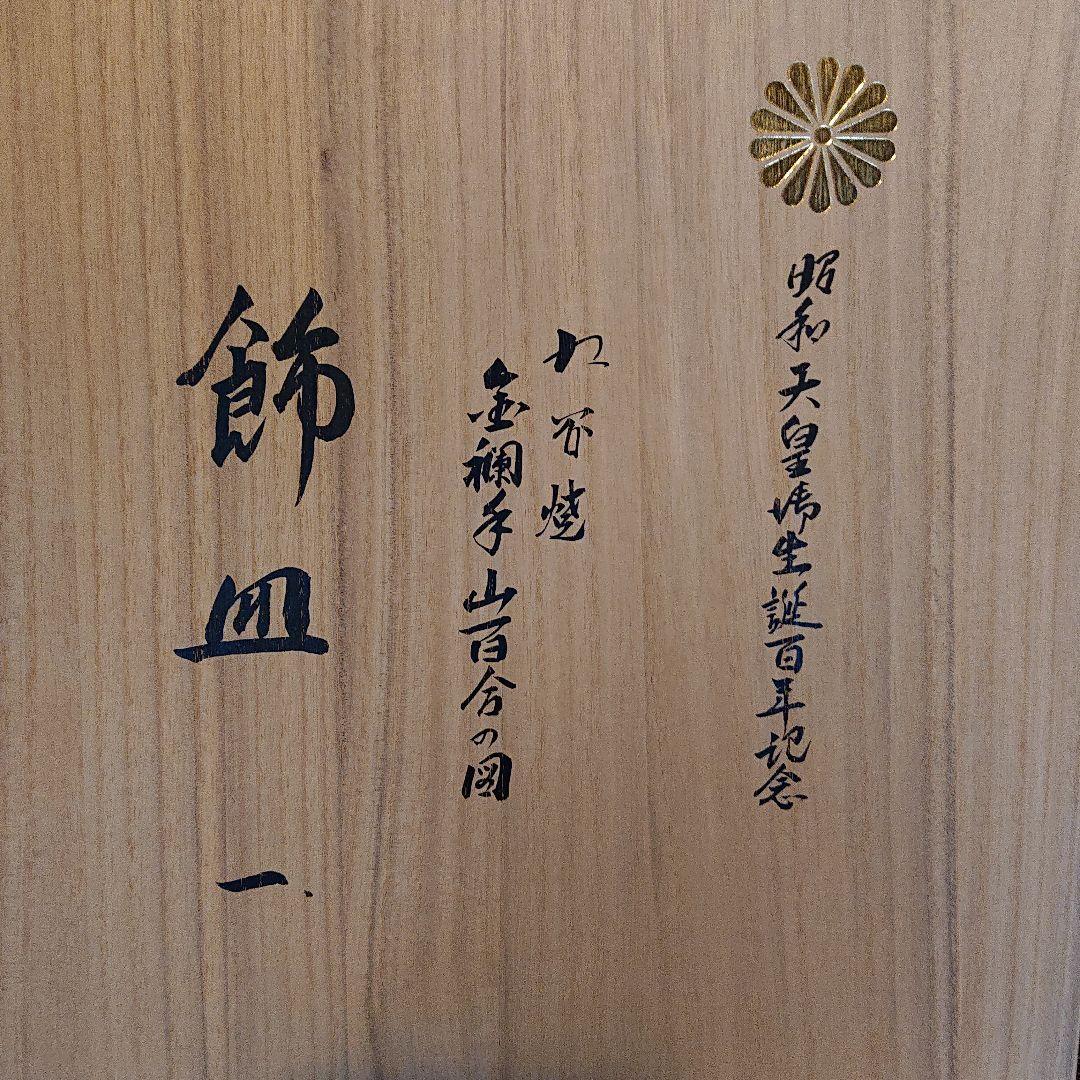 昭和天皇御生誕百年記念
九谷焼
金襴手山百合の図
飾皿 一、